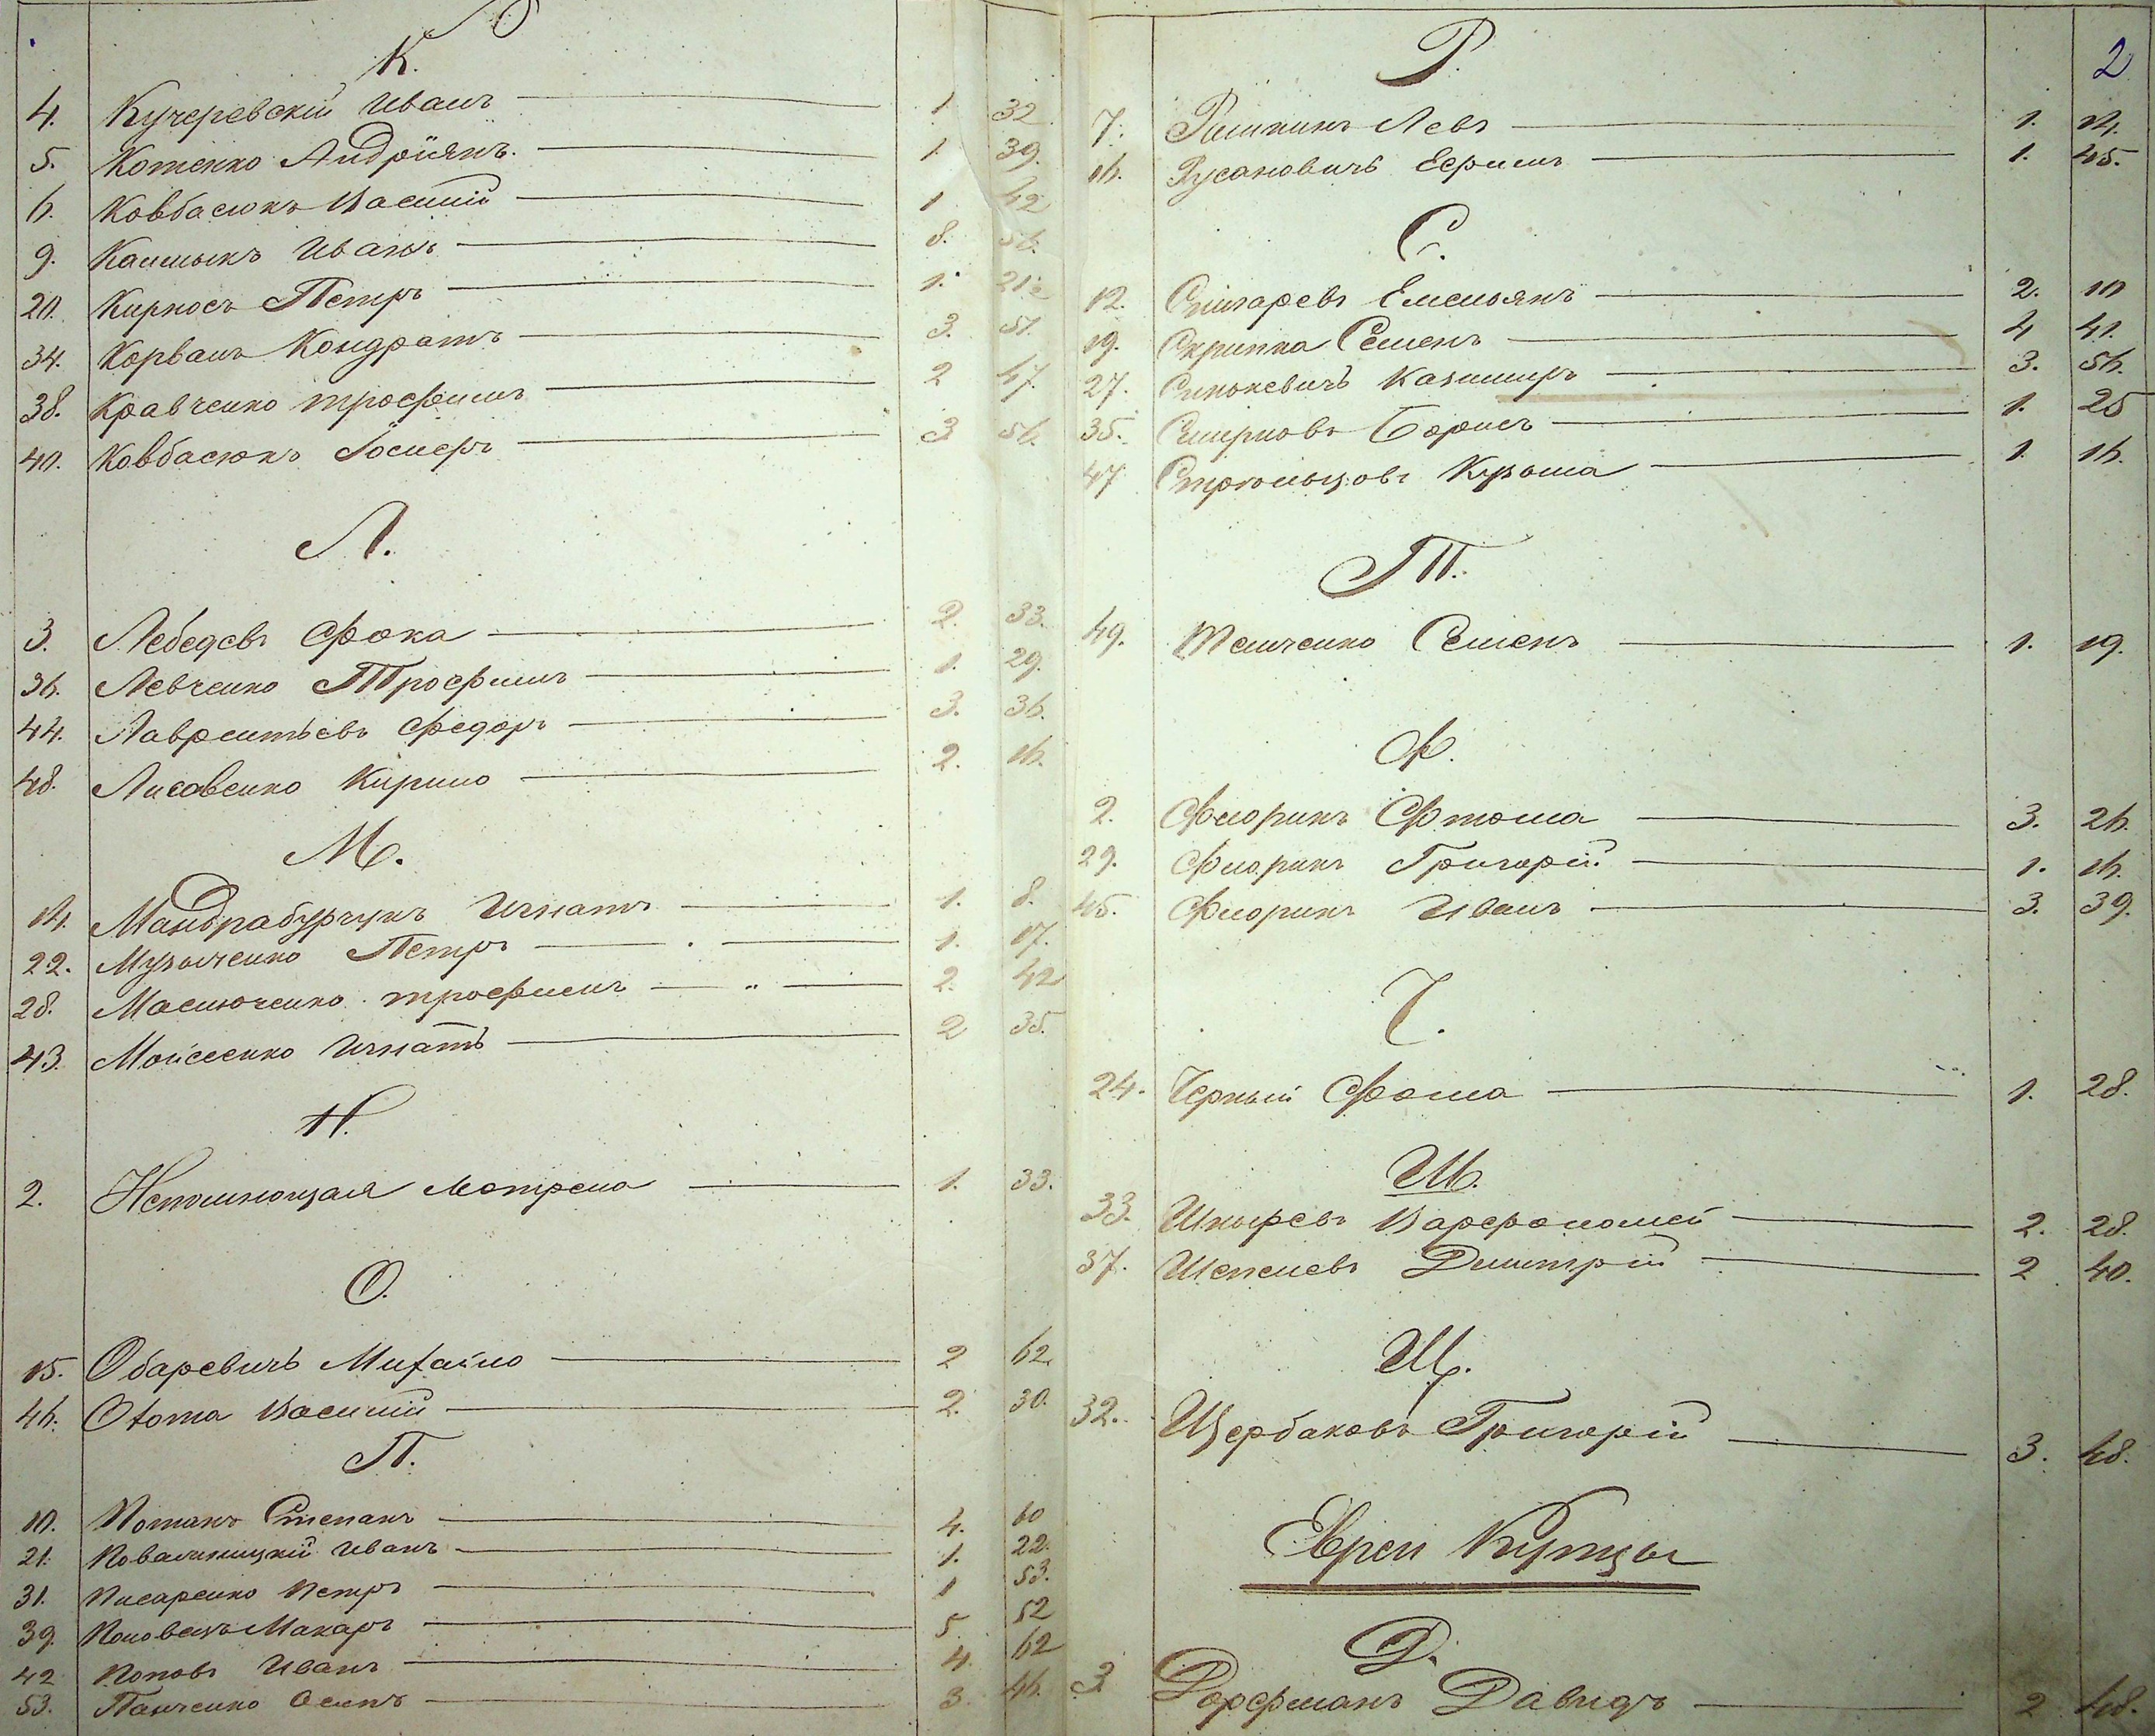 К.
4. Кучеревскій Иванъ 1. 32.
5. Котенко Андріянъ. 1. 39.
6. Ковбасюкъ Василій 1 42
9. Калмыкъ Иванъ 8. 56.
20. Кирносъ Петръ 1. 21.
34. Корванъ Кондратъ 3. 51.
38. Кравченко Трофимъ 2 47.
40. Ковбасюкъ Іосиеръ 3 56.
Л.
3. Лебедевъ Фока 2. 33.
36. Левченко Трофимъ 1. 29.
44. Лаврентьевъ Федоръ 3. 36.
48. Лисовенко Кирило 2. 16.
М.
14. Мандрабурчукъ Игнатъ 1. 8.
22. Музыченко Петръ 1. 17.
28. Маслюченко Трофимъ 2. 42
43. Мойсеенко Игнатъ 2 35.
Н.
2. Непомнющая Мотрена 1. 33.
О.
15. Обаревичъ Михайло 2 62.
46. Охота Василий 2. 30.
П.
10. Потакъ Степанъ 4. 60
21. Иванъ 1. 22.
31. Писаренко Петръ 1 53.
39. Половецъ Макаръ 5. 52
42 Поповъ Иванъ 4. 62
53. Панченко Осипъ 3. 46.
2
Р.
7. Рашкинъ Левъ 1. 14.
16. Русановичъ Ефимъ 1. 45.
С.
12. Емельянъ 2. 10
19. Скрипка Семенъ 4 41.
27. Синькевичъ Казимиръ 3. 56.
35. Смирновъ Борисъ 1. 25
47 Стрельцовъ Кузьма 1. 16.
Т.
49. Темченко Семенъ 1. 19.
Ф.
2. Флоринъ Фтома 3. 26.
29. Флоринъ Григорій 1. 16.
45. Флоринъ Иванъ 3. 39.
Ч.
24. Черный Фома 1. 28.
Ш.
33. Шкыревъ Варфоломей 2. 28.
37. Шепелевъ Димитрій 2 40.
Щ.
32. Щербаковъ Григорій 3. 48.
Евреи Купцы
Д.
3 Дорфманъ Давидъ 2 48.